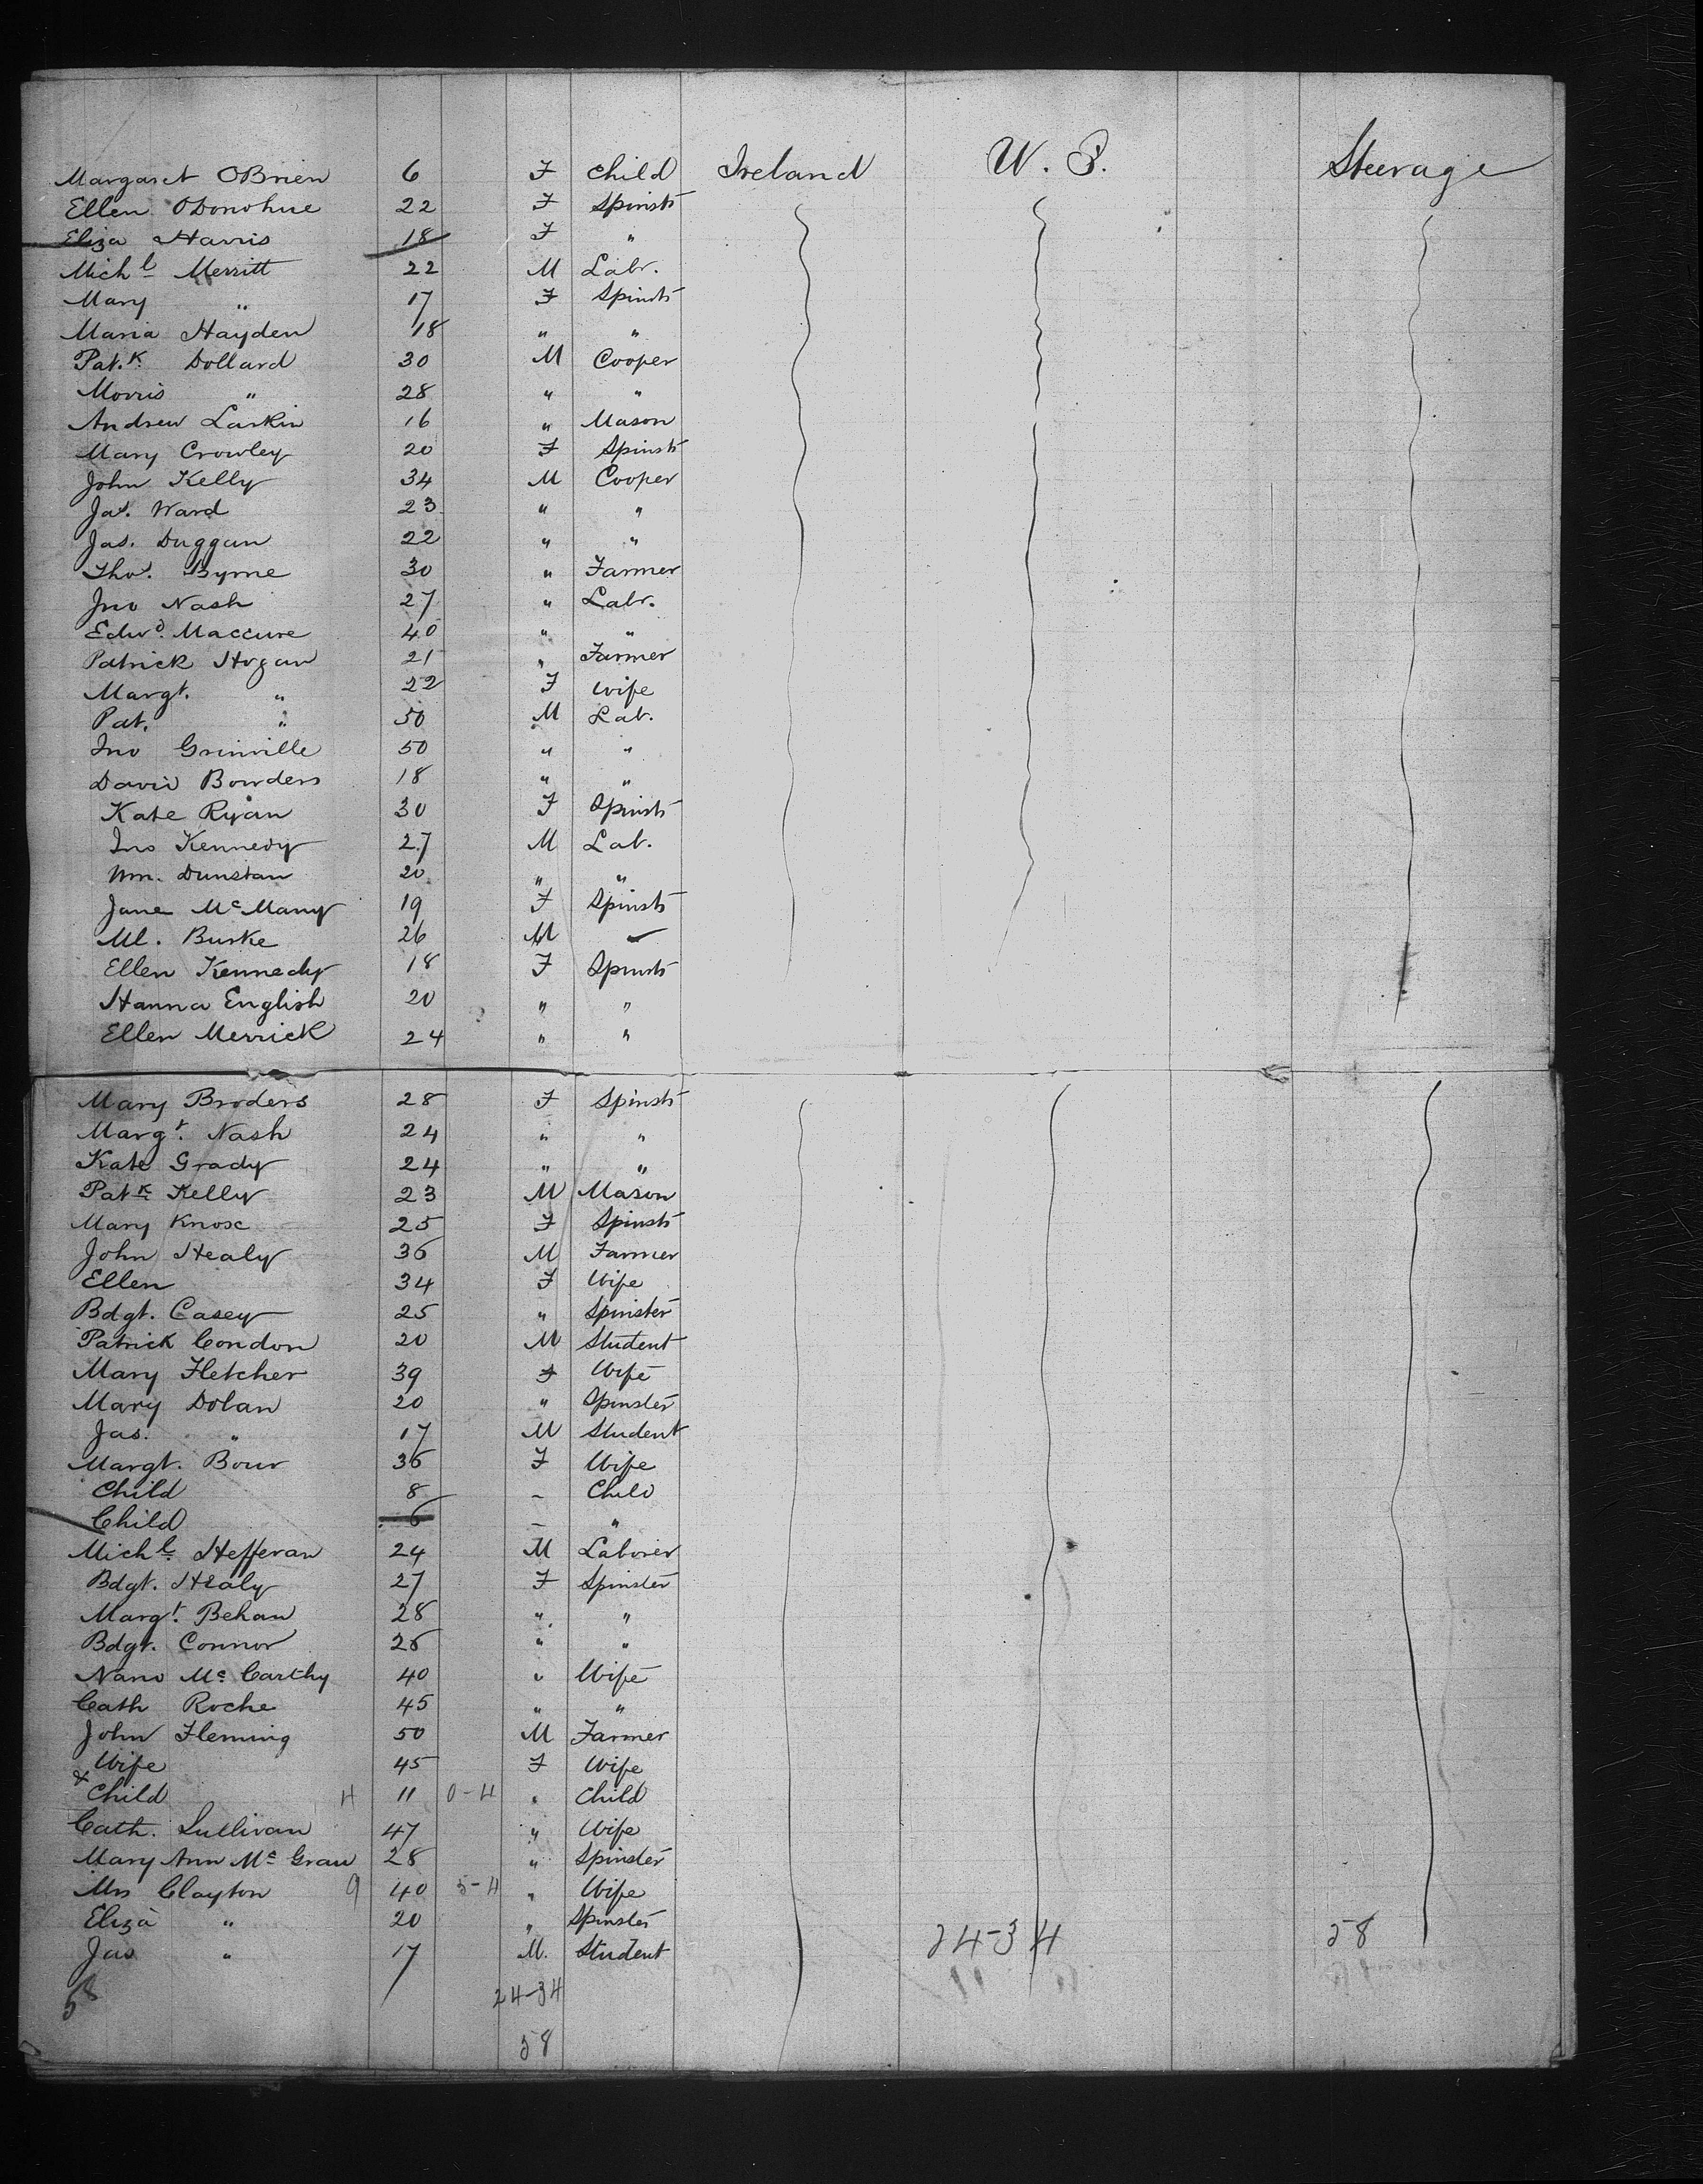 Margaret OBrien 6 F Child Ireland U. S. Steerage
Ellen ODonohue 22 F Spinstr
Eliza Harris 18 F "
Michl Merritt 22 M Labr.
Mary " 17 F Spinstr
Maria Hayden 18 " "
Pat.k Dollard 30 M Cooper
Morris " 28 " "
Andrew Larkin 16 " Mason
Mary Crowley 20 F Spinstr
John Kelly 34 M Cooper
Jas. Ward 23 " "
Jas. Duggan 22 " "
Thos. Byrne 30 " Farmer
Jno Nash 27 " Labr.
Edwd. Maccure 40 " "
Patrick Hogan 21 " Farmer
Margt. " 22 F Wife
Pat. " 50 M Lab.
Jno Grinville 50 " "
David Bowders 18 " "
Kate Ryan 30 F Spinstr
Jno Kennedy 27 M Lab.
Wm. Dunstan 20 " "
Jane McMany 19 F Spinstr
Ml. Burke 26 M ✓
Ellen Kennedy 18 F Spinstr
Hanna English 20 " "
Ellen Merrick 24 " "
Mary Broders 28 F Spinstr
Margt. Nash 24 " "
Kate Grady 24 " "
Patk Kelly 23 M Mason
Mary Knox 25 F Spinstr
John Healy 36 M Farmer
Ellen 34 F Wife
Bdgt. Casey 25 " Spinster
Patrick Condon 20 M Student
Mary Fletcher 39 F Wife
Mary Dolan 20 " Spinster
Jas. " 17 M Student
Margt. Bour 36 F Wife
Child 8 - Child
Child 6 - "
Michl Hefferan 24 M Laborer
Bdgt. Healy 27 F Spinster
Margt. Behan 28 " "
Bdgt. Connor 26 " "
Nano McCarthy 40 " Wife
Cath Roche 45 " "
John Fleming 50 M Farmer
Wife 45 F Wife
& Child 4 11 0-4 " Child
Cath. Sullivan 47 " Wife
Mary Ann McGraw 28 " Spinster
Mrs Clayton 9 40 5-4 " Wife
Eliza " 20 " Spinster
Jas " 17 M. Student 24-34 58
58 24-34
58